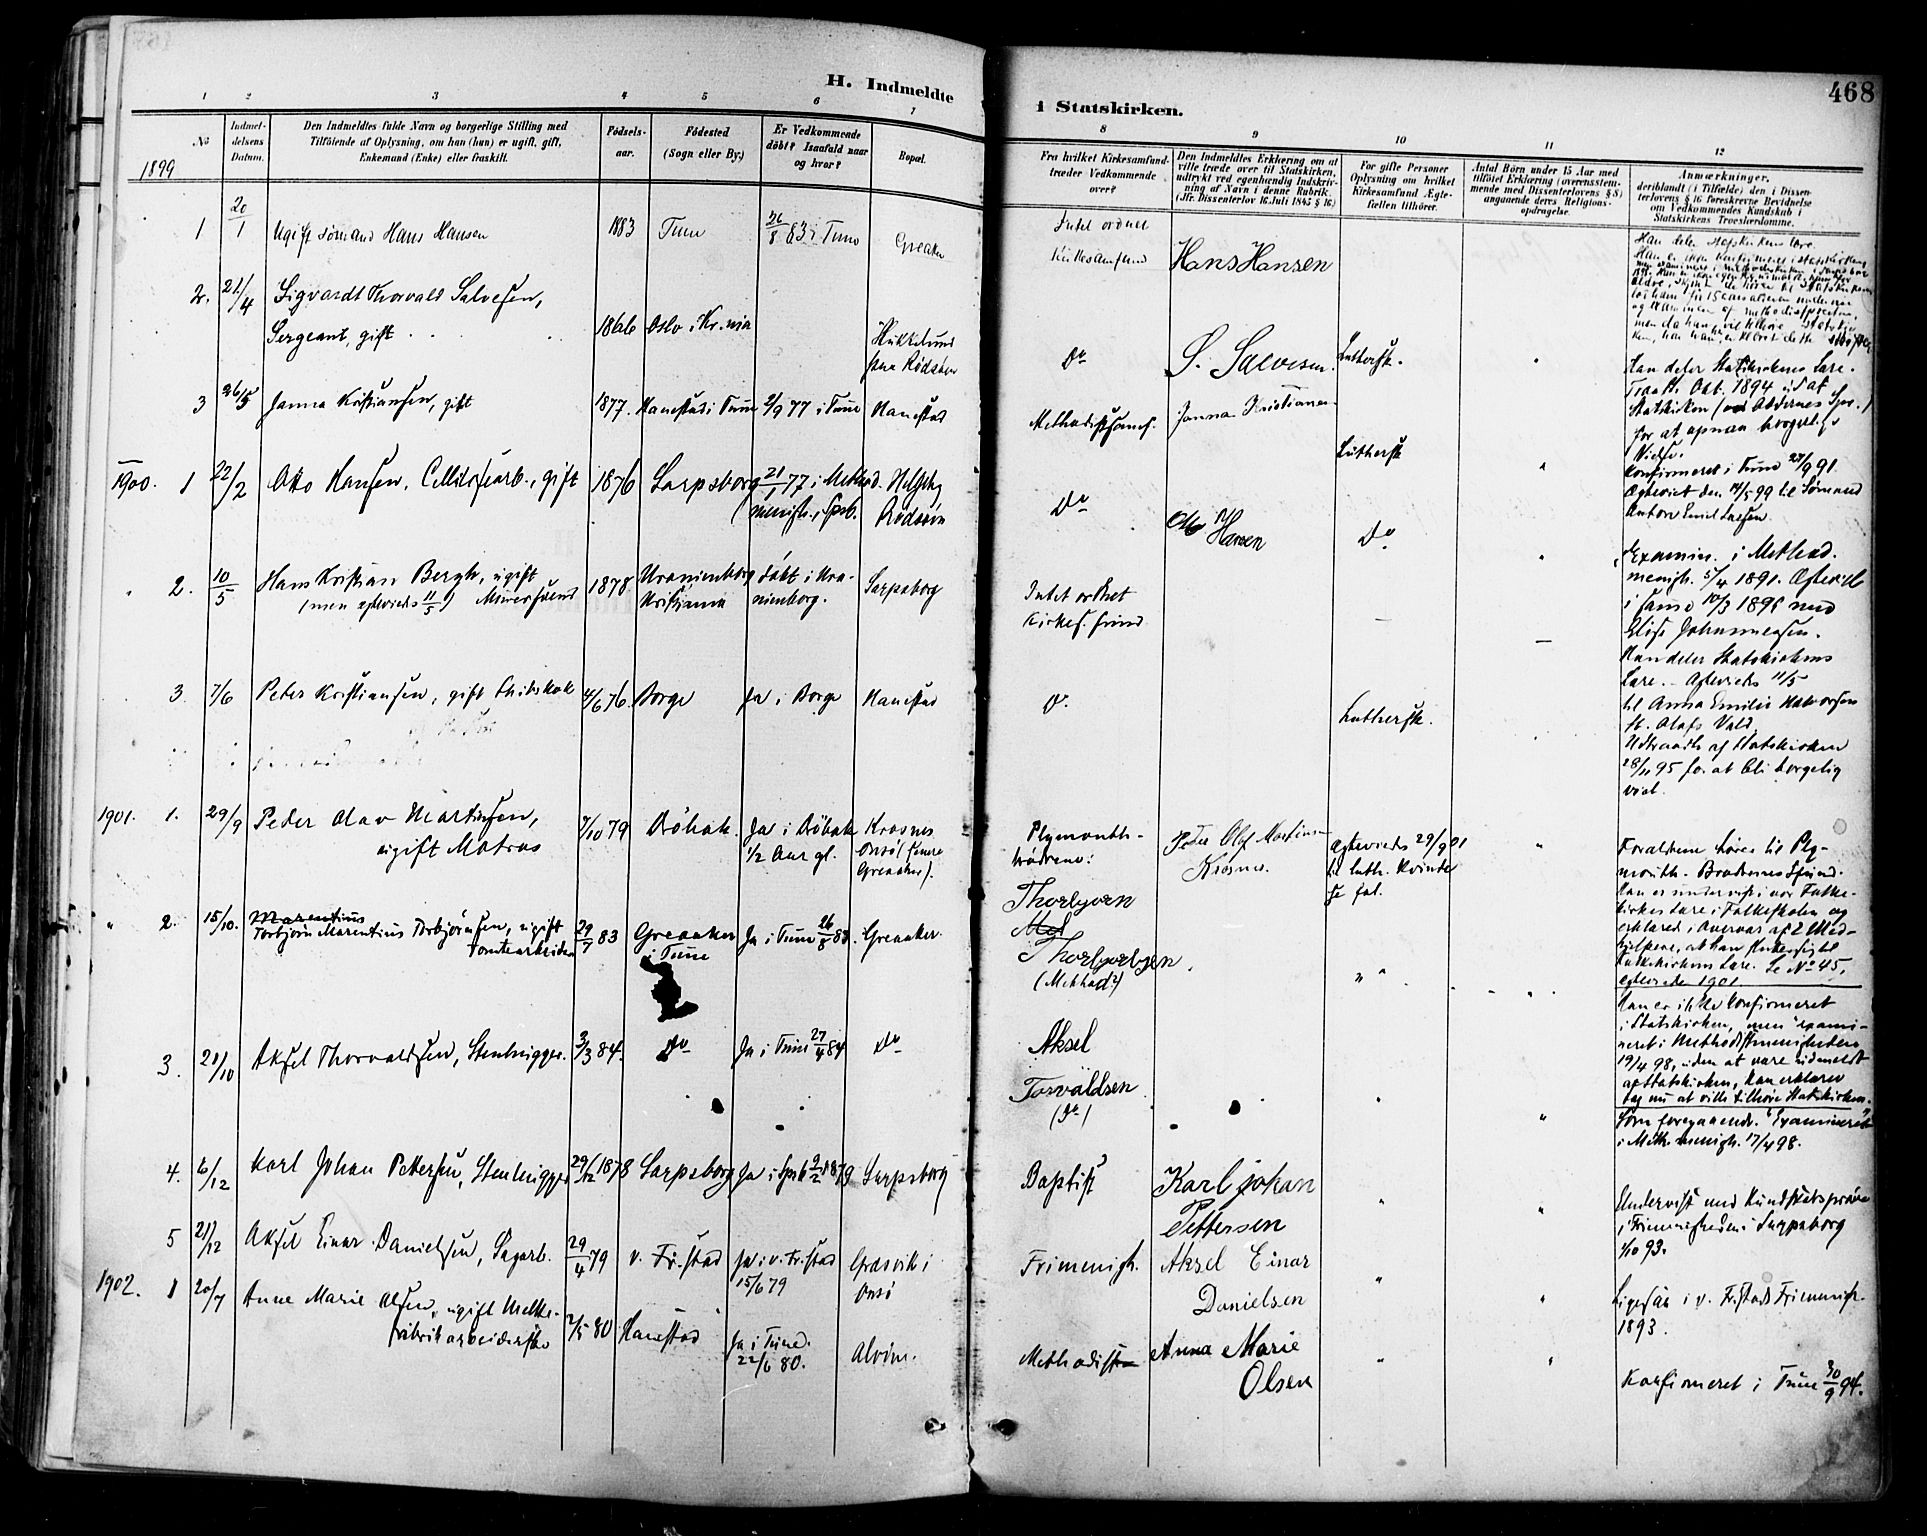 H. Indmeldte
i Statskirken.
468
1 2 3 4 5 6 7
8 9 10 11 12
No
Indmeldelsens Datum.
Den Indmeldtes fulde Navn og borgerlige Stilling med
Tilføiende af Oplysning, om han (hun) er ugift, gift,
Enkemand (Enke) eller fraskilt.
Fødselsaar.
Fødested
(Sogn eller By.)
Er Vedkommende
døbt? Isaafald naar
og hvor?
Bopæl.
Fra hvilket Kirkesamfund
træder Vedkommende
over?
Den Indmeldtes Erklæring om at
ville træde over til Statskirken,
udtrykt ved egenhændig Indskrivning af Navn i denne Rubrik.
(Jfr. Dissenterlov 16. Juli 1845 § 16)
For gifte Personer
Oplysning om hvilket
Kirkesamfund Ægtefællen tilhører.
Antal Børn under 15 Aar med
tilføiet Erklæring (overensstemmende med Dissenterlovens § 8)
angaaende deres Religionsopdragelse.
Anmærkninger,
deriblandt (i Tilfælde) den i Dissenterlovens § 16 foreskrevne Bevidnelse
om Vedkommendes Kundskab i
Statskirkens Troeslærdomme.
1899
1 20/1 Ugift Sømand Hans Hansen 1883 Tune 26/8 83 i Tune Greaker
Intet ordnet
Kirkesamfund Hans Hansen
Han deler Statskirkens Lære.
2. 21/4 Sigvardt Thorvald Salvesen,
Sergeant, gift 1866 Oslo i Kr.nia
Do S. Salvesen. Luthersk.
3 26/5 Janna Kristiansen, gift 1877. Hanestad i Tune 2/9 77 i Tune Hanestad
Methodistsamf. Janna Kristiansen Luthersk
Han deler Statskirkens Lære.
Traadt. Okt. 1894 ud af
Statskirken
for at opnaa borgerlig
Vielse.
1900. 1 22/2 Otto Hansen, Cellulosearb., gift 1876 Sarpsborg 21/1 77 i Methodmenigh. i Spsb.
Do Otto Hansen Do
Konfirmeret i Tune 27/9 91.
Ægteviet den 14/5 99 til Sømand
Anton Emil
2. 10/5 Hans Kristian Bergh, ugift
(men ægtevieds 11/5) Murersvend 1878 Uranienborg
Kristiania døbt i Uranienborg. Sarpsborg
Intet ordnet
Kirkes.fund
Examin. i Methodmenigh. 5/4 1891. Ægteviet
i samme 10/3 1895 med
Elise Johannessen.
3. 7/6 Peter Kristiansen, gift Skibskok 4/6 76. Borge Ja i Borge Hanestad
Do Luthersk.
Han deler Statskirkens
Lære. – Ægtevieds 11/5
til Anna Emilie Halvorsen
St. Olafs Vold.
Udtraadt af Statskirken
28/11 95 for at bli borgelig
viet.
1901. 1. 29/9 Peder Olav Martinsen,
ugift Matros 7/10 79 Drøbak. Ja i Drøbak
1/2 Aar gl. Krosnes
Onsø (senere
Greaaker).
Plymouthbrødrene: Peder Olaf Martinsen
Krosnes. Ægtevieds 29/9 01
til luth. Kvinde
Forældrene hører til Plymouth-Brødrenes Sfund.
" 2. 15/10. Marentius
Torbjørn Marentius Torbjørnsen, ugift
Tomtearbeider 29/7 83 Greaaker
i Tune Ja i Tune 26/8 83 Greaaker.
Thorbjorn
Mel
Thorbjorbgen
(Methodi)
Folkekirkens Lære. Se No 45,
ægteviede 1901.
Han er ikke konfirmeret
i Statskirken, men examineret i Methodistmenigheden
19/4 98, uden at være udmeldt
af Statskirken, Han erklærer
sig nu at ville tilhøre Statskirken.
3. 20/10 Aksel Thorvaldsen, Stenhugger. 3/3 84. Do Ja i Tune 27/4 84 Do
Aksel
Torvaldsen
(Do)
Som foregaaende. "Examineret"
i Meth. menigh. 17/4 98.
4. 6/12 Karl Johan Pettersen, Stenhugger 29/12 1878 Sarpsborg Ja i Spsb 9/2 1879 Sarpsborg
Baptist Karl johan
Pettersen
Undervist med Kundskabsprøve
i Frimenigheden i Sarpsborg
1/10 93.
5 21/12 Aksel Einar Danielsen, Sagarb. 29/4 79 v. Fr.stad Ja i v. Fr.stad
15/6 79 Græsvik i
Onsø
Frimenigh. Aksel Einar
Danielsen
Ligesaa i v. Fr.stads Frimenigh.
1893.
1902. 1 20/7 Anne Marie Olsen, ugift Melkefabrikarbeiderske 2/5 80 Hanestad Ja i Tune.
22/6 80. Alvim.
Methodist Anna Marie
Olsen
Konfirmeret i Tune 30/9 94.